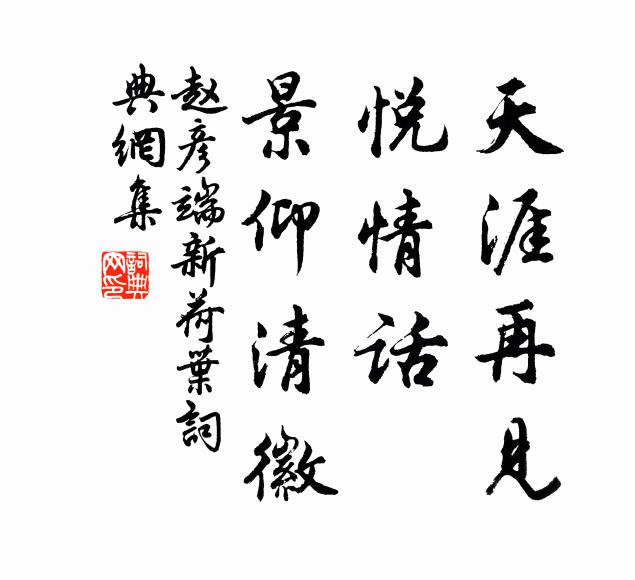 天涯再見
悦情话
景仰清徽
赵彦端新荷葉詞
典網集
詞典網印